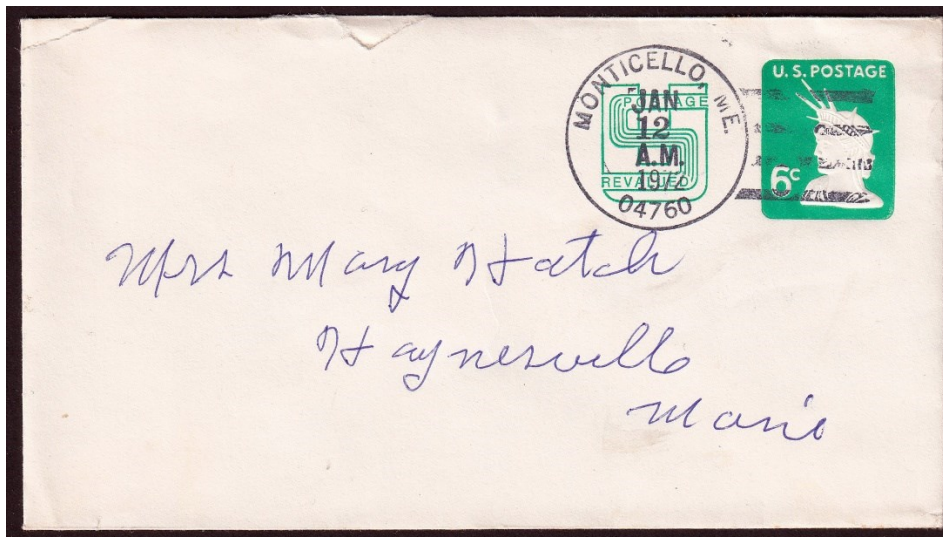 MONTICELLO, ME.
JAN
12
A.M.
1972
04760
POSTAGE
REVALUED
U.S. POSTAGE
6c
Mrs Mary Hatch
Haynesville
Maine